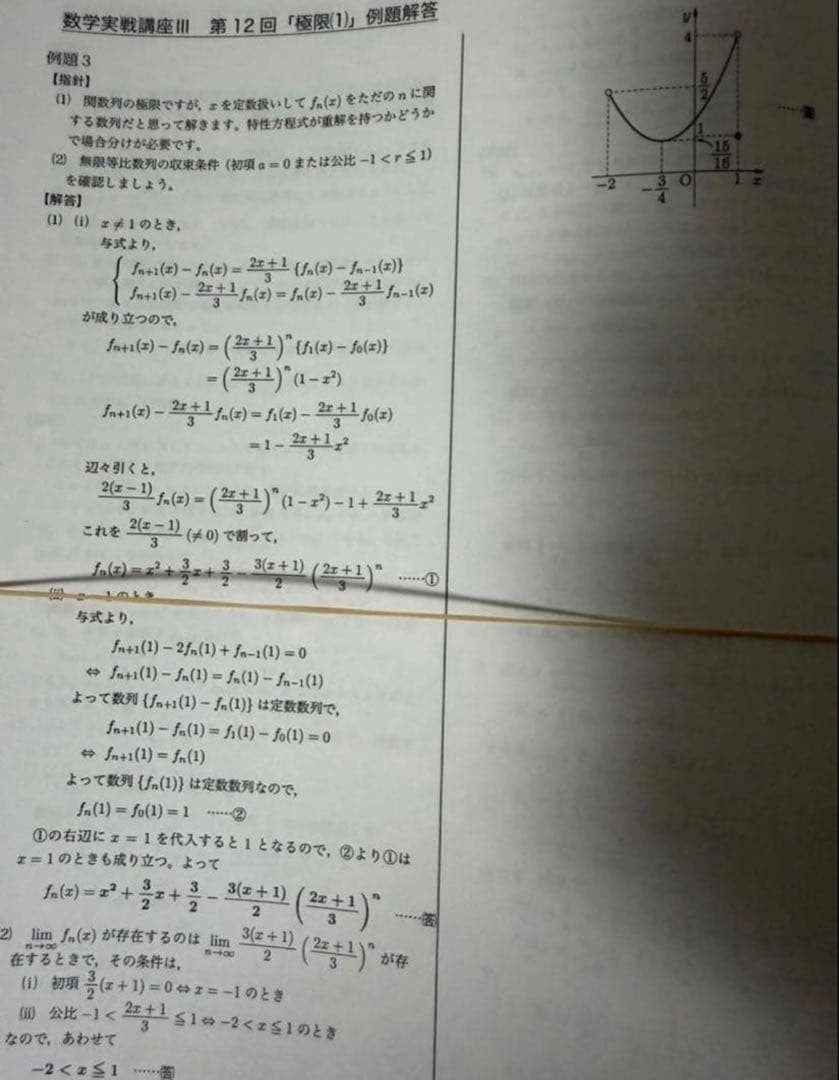 数学実戦講座Ⅲ 第12回「極限⑴」例題解答
例題3
【指針】
(1) 関数列の極限ですが，xを定数扱いして f_n(x) をただの n に関
する数列だと思って解きます。特性方程式が重解を持つかどうか
で場合分けが必要です。
(2) 無限等比数列の収束条件（初項 a=0 または公比 −1<r≦1）
を確認しましょう。
【解答】
(1) (i) x≠1 のとき，
与式より，
{ f_{n+1}(x)−f_n(x)=\frac{2x+1}{3}{f_n(x)−f_{n−1}(x)}
f_{n+1}(x)−\frac{2x+1}{3}f_n(x)=f_n(x)−\frac{2x+1}{3}f_{n−1}(x)
が成り立つので，
f_{n+1}(x)−f_n(x)=(\frac{2x+1}{3})^n{f_1(x)−f_0(x)}
=(\frac{2x+1}{3})^n(1−x^2)
f_{n+1}(x)−\frac{2x+1}{3}f_n(x)=f_1(x)−\frac{2x+1}{3}f_0(x)
=1−\frac{2x+1}{3}x^2
辺々引くと，
\frac{2(x−1)}{3}f_n(x)=(\frac{2x+1}{3})^n(1−x^2)−1+\frac{2x+1}{3}x^2
これを \frac{2(x−1)}{3}(≠0) で割って，
f_n(x)=x^2+\frac{3}{2}x+\frac{3}{2}−\frac{3(x+1)}{2}(\frac{2x+1}{3})^n ……①
のとき，
与式より，
f_{n+1}(1)−2f_n(1)+f_{n−1}(1)=0
⇔ f_{n+1}(1)−f_n(1)=f_n(1)−f_{n−1}(1)
よって数列 {f_{n+1}(1)−f_n(1)} は定数数列で，
f_{n+1}(1)−f_n(1)=f_1(1)−f_0(1)=0
⇔ f_{n+1}(1)=f_n(1)
よって数列 {f_n(1)} は定数数列なので，
f_n(1)=f_0(1)=1 ……②
①の右辺に x=1 を代入すると 1 となるので，②より①は
x=1 のときも成り立つ。よって
f_n(x)=x^2+\frac{3}{2}x+\frac{3}{2}−\frac{3(x+1)}{2}(\frac{2x+1}{3})^n ……答
2) \lim_{n→∞} f_n(x) が存在するのは \lim_{n→∞} \frac{3(x+1)}{2}(\frac{2x+1}{3})^n が存
在するときで，その条件は，
(i) 初項 \frac{3}{2}(x+1)=0⇔x=−1 のとき
(ii) 公比 −1<\frac{2x+1}{3}≦1⇔−2<x≦1 のとき
なので，あわせて
−2<x≦1 ……答
y
4
\frac{5}{2}
1
\frac{15}{16}
−2
−\frac{3}{4}
O
1
x